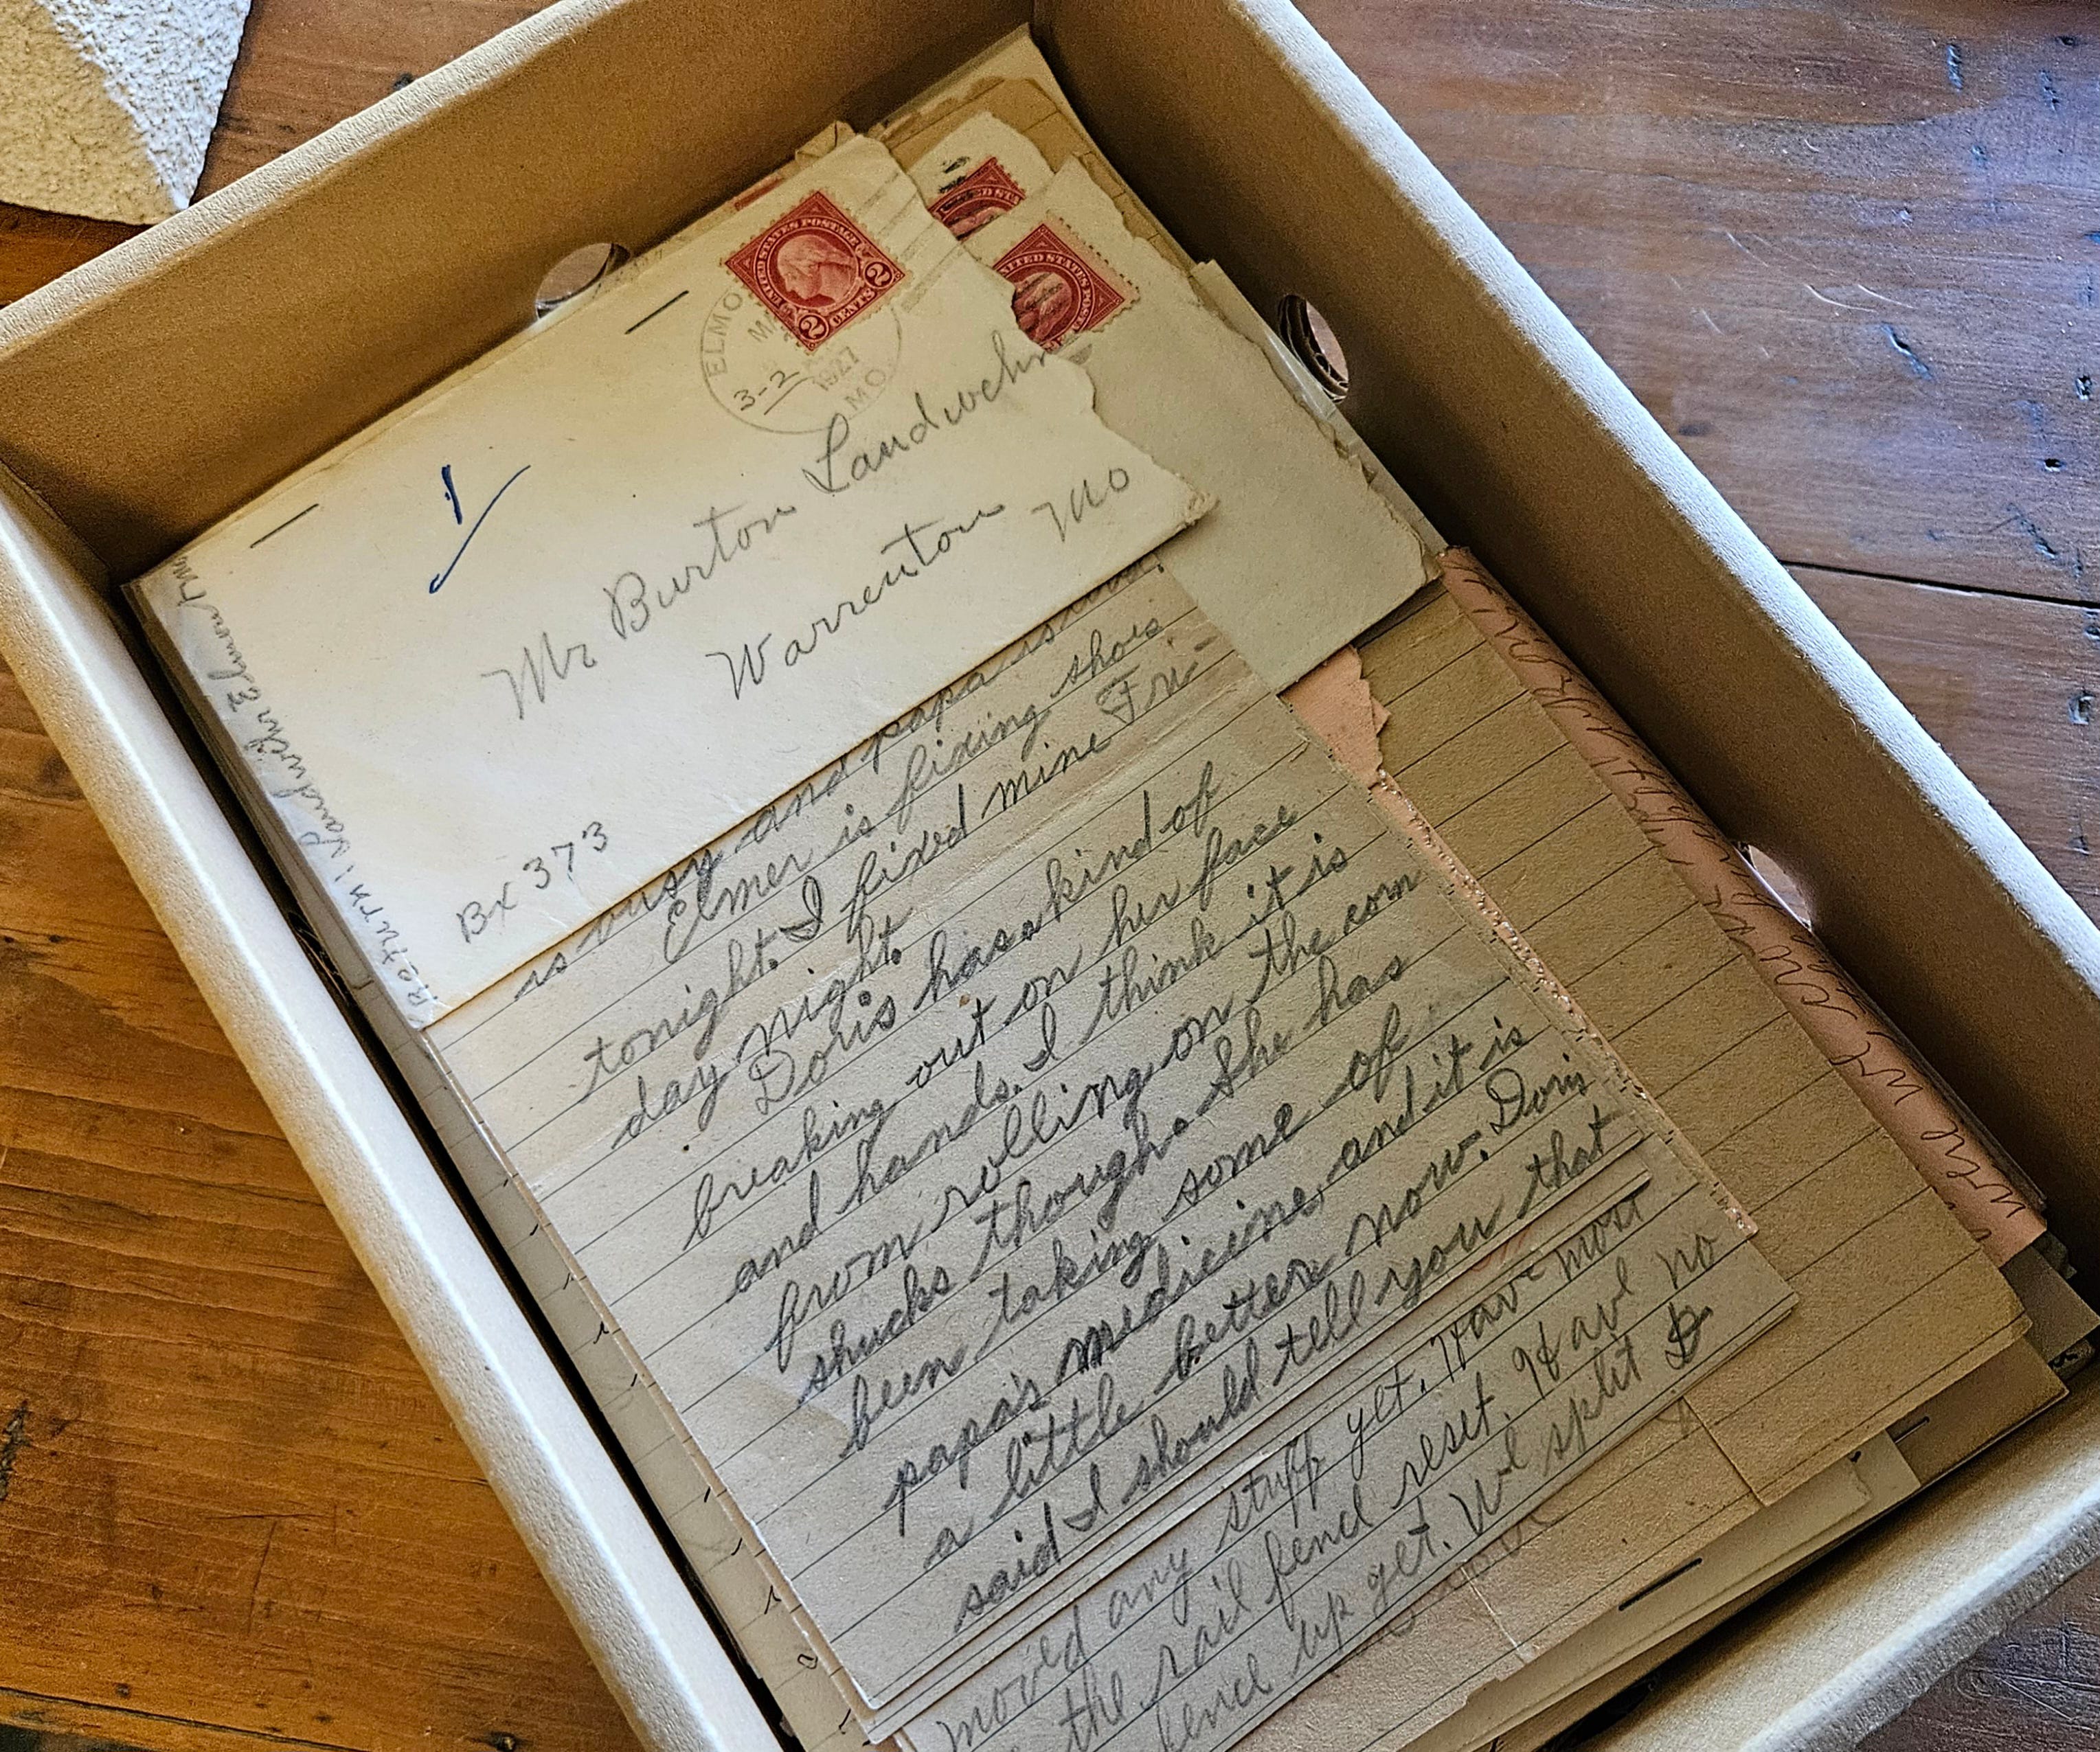 UNITED STATES POSTAGE
2 CENTS 2
ELMO
3-2
1927
MO.
1
Mr Burton Landwehr
Warrenton Mo
Bx 373
Return: Landwehr Elmer Mo
UNITED STATES POS
is busy and papa is
Elmer is fixing shoes
tonight. I fixed mine Fri-
day night.
Doris has a kind of
breaking out on her face
and hands. I think it is
from rolling on the corn
shucks though. She has
been taking some of
papa's medicine, and it is
a little better now. Doris
said I should tell you that
moved any stuff yet. Have most
the rail fence reset. Have no
fence up yet. We split